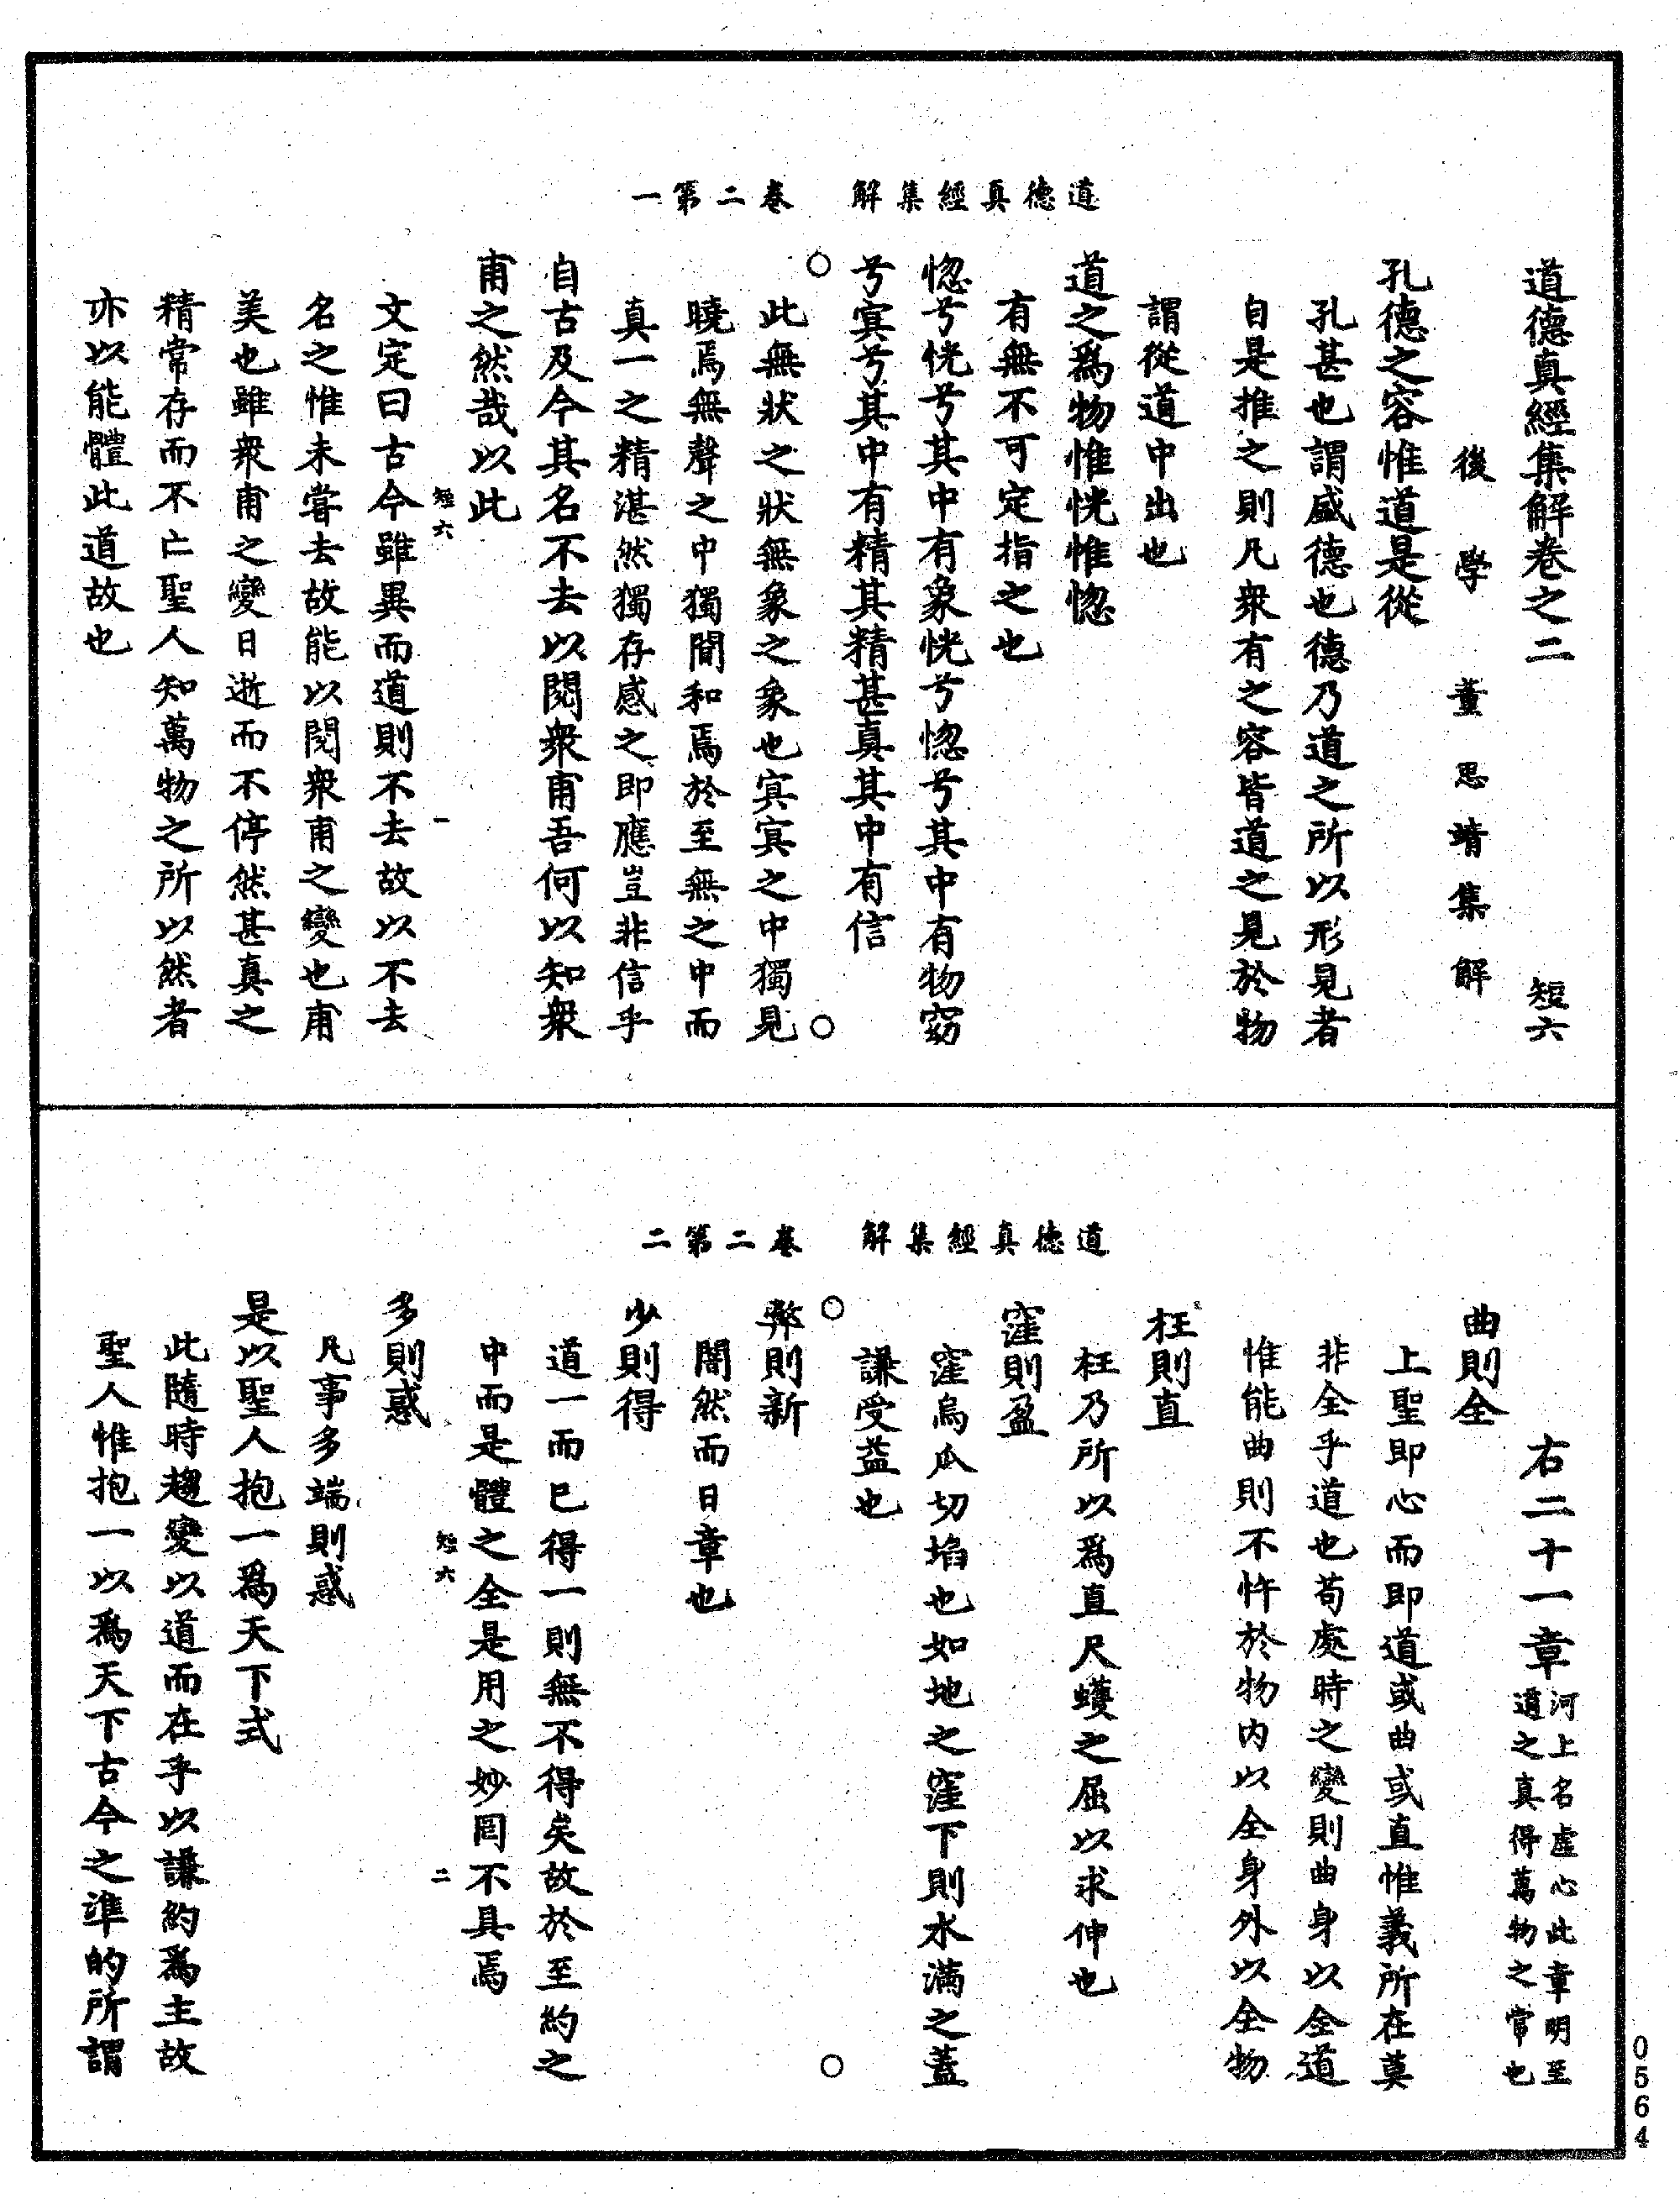 道德真經集解　卷二第一
道德真經集解卷之二　短六
後學　董思靖集解
孔德之容惟道是從
孔甚也謂盛德也德乃道之所以形見者
自是推之則凡衆有之容皆道之見於物
謂從道中出也
道之爲物惟恍惟惚
有無不可定指之也
惚兮恍兮其中有象恍兮惚兮其中有物窈
兮冥兮其中有精其精甚真其中有信
此無狀之狀無象之象也冥冥之中獨見
曉焉無聲之中獨聞和焉於至無之中而
真一之精湛然獨存感之即應豈非信乎
自古及今其名不去以閱衆甫吾何以知衆
甫之然哉以此
短六　一
文定曰古今雖異而道則不去故以不去
名之惟未嘗去故能以閱衆甫之變也甫
美也雖衆甫之變日逝而不停然甚真之
精常存而不亡聖人知萬物之所以然者
亦以能體此道故也
道德真經集解　卷二第二
右二十一章河上名虛心此章明至
道之真得萬物之常也
曲則全
上聖即心而即道或曲或直惟義所在莫
非全乎道也苟處時之變則曲身以全道
惟能曲則不忤於物內以全身外以全物
枉則直
枉乃所以爲直尺蠖之屈以求伸也
窪則盈
窪烏瓜切埳也如地之窪下則水滿之蓋
謙受益也
弊則新
闇然而日章也
少則得
道一而已得一則無不得矣故於至約之
中而是體之全是用之妙罔不具焉
短六　二
多則惑
凡事多端則惑
是以聖人抱一爲天下式
此隨時趨變以道而在乎以謙約爲主故
聖人惟抱一以爲天下古今之準的所謂
0564